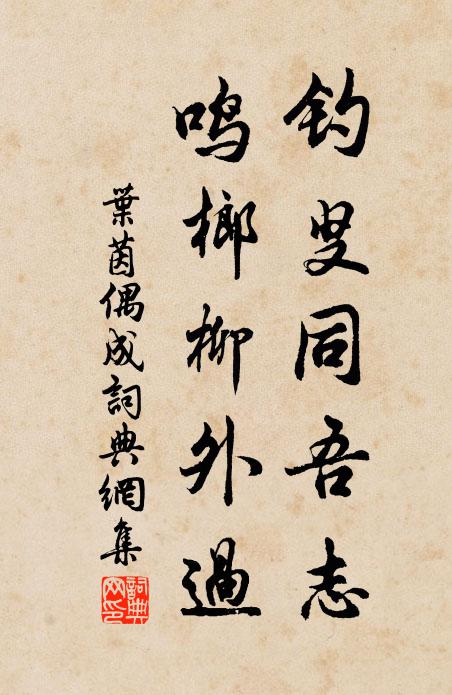 钓叟同吾志
鸣榔柳外過
葉茵偶成詞典網集
詞典网印